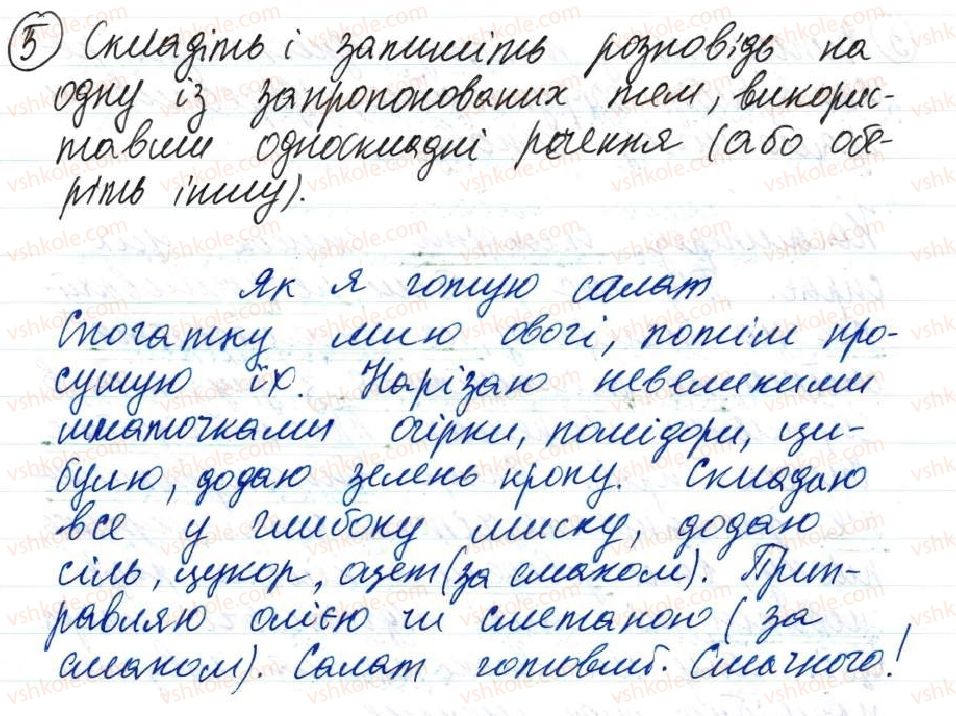 5 Складіть і запишіть розповідь на
одну із запропонованих тем, викорис-
тавши односкладні речення (або обе-
ріть іншу).
Як я готую салат
Спочатку мию овочі, потім про-
сушую їх. Нарізаю невеликими
шматочками огірки, помідори, ци-
булю, додаю зелень кропу. Складаю
все у глибоку миску, додаю
сіль, цукор, оцет (за смаком). Прип-
равляю олією чи сметаною (за
смаком). Салат готовий. Смачного!
vshkole.com